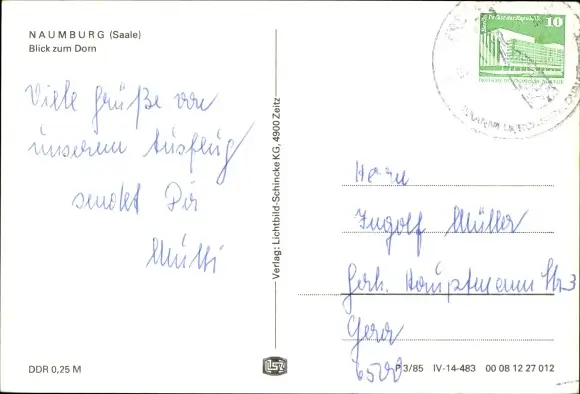 NAUMBURG (Saale)
Blick zum Dom
Viele Grüße von
unserem Ausflug
sendet Dir
Mutti
DDR 0,25 M
Verlag: Lichtbild-Schincke KG, 4900 Zeitz
10
Palast der Republik
Herrn
Ingolf Müller
Gerh. Hauptmann Str 3
Gera
6500
P 3/85 IV-14-483 00 08 12 27 012